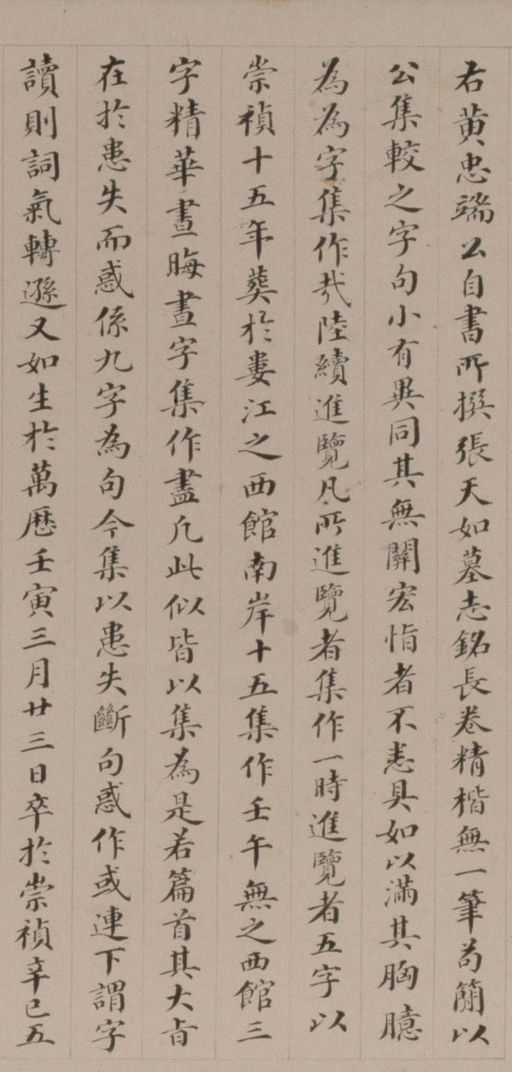 右黄忠端公自書所撰張天如墓志銘長卷精楷無一筆苟簡以
公集較之字句小有異同其無關宏恉者不悉具如以滿其胸臆
為為字集作於陸續進覽凡所進覽者集作一時進覽者五字以
崇禎十五年葬於婁江之西館南岸十五集作壬午無之西館三
字精華晝晦晝字集作盡凡此似皆以集為是若篇首其大旨
在於患失而惑係九字為句今集以患失斷句惑作或連下謂字
讀則詞氣轉遜又如生於萬歷壬寅三月廿三日卒於崇禎辛巳五